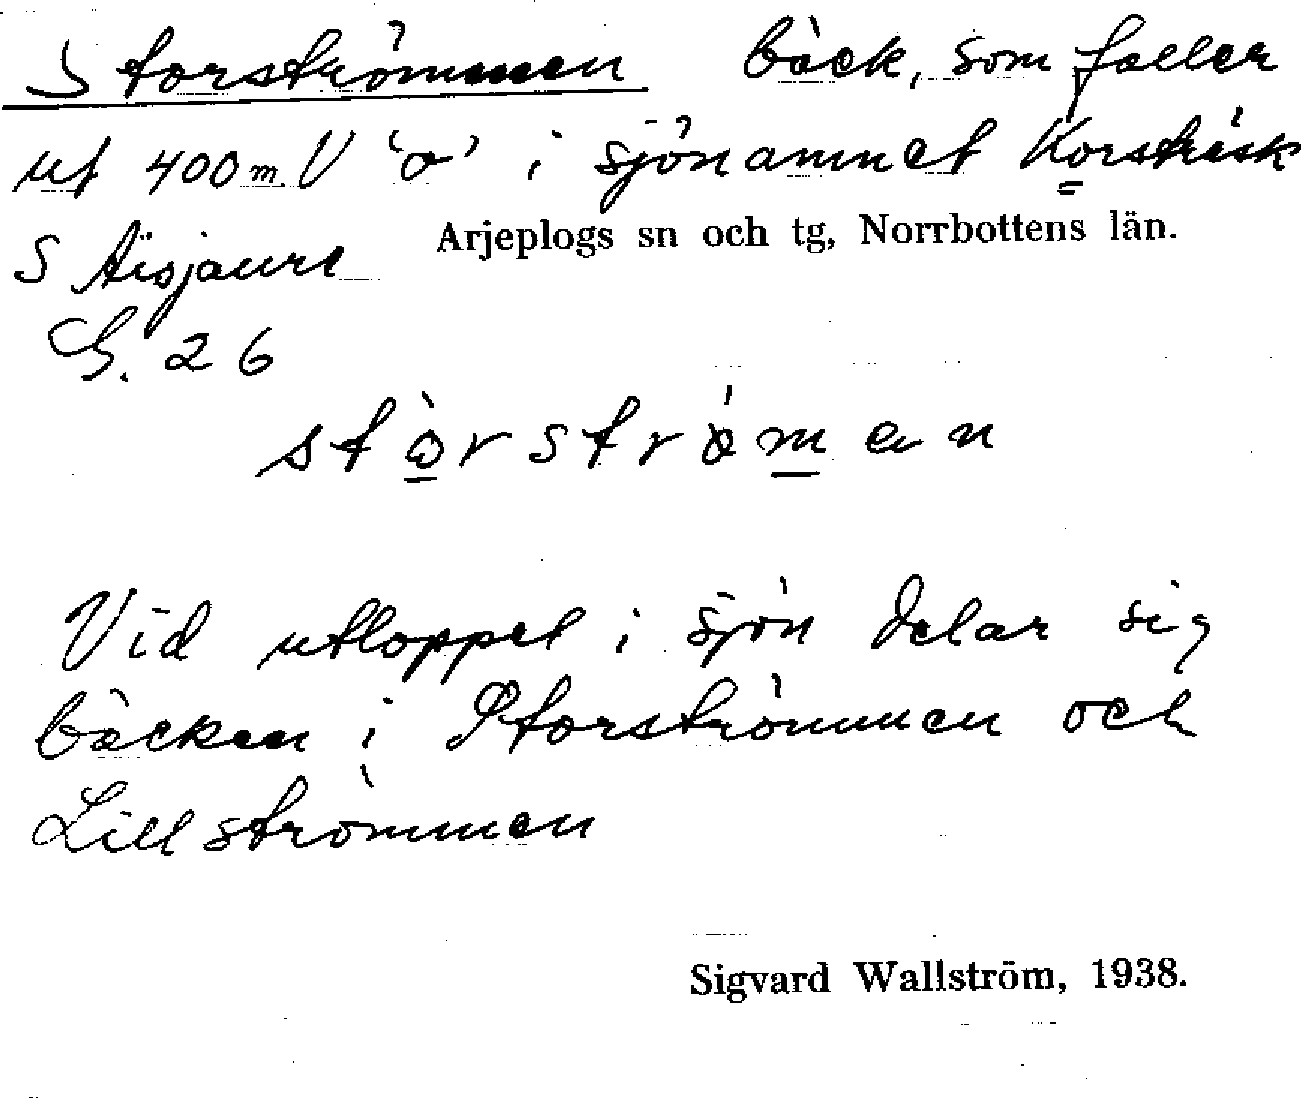 Storströmmen bäck, som faller
ut 400 m V 'o' i sjönamnet Korsträsk
Arjeplogs sn och tg, Norrbottens län.
S Aisjaure
G. 26
storströmen
Vid utloppet i sjön delar sig
bäcken i Storströmmen och
Lillströmmen
Sigvard Wallström, 1938.